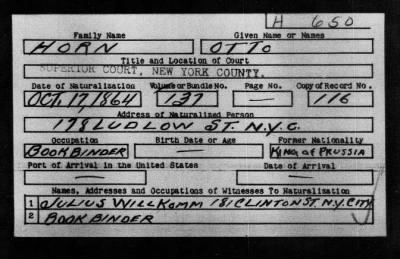 H 650
Family Name Given Name or Names
HORN OTTO
Title and Location of Court
SUPERIOR COURT, NEW YORK COUNTY.
Date of Naturalization Volume or Bundle No. Page No. Copy of Record No.
OCT. 17, 1864 137 — 116
Address of Naturalized Person
178 LUDLOW ST. N.Y.C.
Occupation Birth Date or Age Former Nationality
BOOKBINDER — KING of PRUSSIA
Port of Arrival in the United States Date of Arrival
— —
Names, Addresses and Occupations of Witnesses To Naturalization
1 JULIUS WILLKOMM 181 CLINTON ST. N.Y. CITY
2 BOOK BINDER